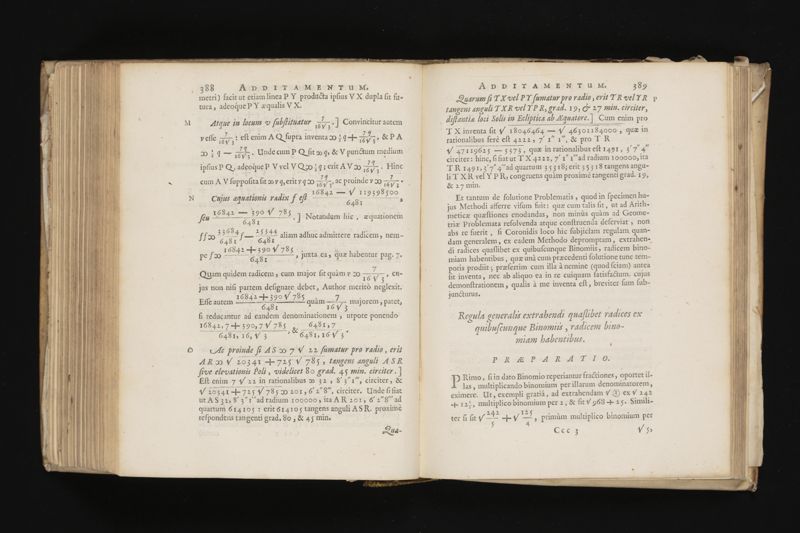 388 ADDITAMENTUM.
metri) facit ut etiam linea P Y producta ipsius V X dupla sit fu-
tura, adeoque P Y æqualis V X.
M Atque in locum v substituatur 7/16√3.] Convincitur autem
v esse 7/16√3: est enim A Q supra inventa ∞ ½ q + 7q/16√3, & P A
∞ ½ q — 7q/16√3. Unde cum P Q sit ∞ q, & V punctum medium
ipsius P Q, adeoque P V vel V Q ∞ ½ q; erit A V ∞ 7q/16√3. Hinc
cum A V supposita sit ∞ v q, erit v q ∞ 7q/16√3, ac proinde v ∞ 7/16√3.
N Cujus æquationis radix f est 16842 — √ 119398500/6481,
seu 16842 — 390 √ 785/6481.] Notandum hîc, æquationem
ff ∞ 33684/6481 f — 25344/6481 aliam adhuc admittere radicem, nem-
pe f ∞ 16842 + 390 √ 785/6481, juxta ea, quæ habentur pag. 7.
Quam quidem radicem, cum major sit quàm v ∞ 7/16√3, cu-
jus non nisi partem designare debet, Author meritò neglexit.
Esse autem 16842 + 390 √ 785/6481 quàm 7/16√3 majorem, patet,
si reducantur ad eandem denominationem, utpote ponendo
16842, 7 + 390, 7 √ 785/6481, 16, √ 3, & 6481, 7/6481, 16 √ 3.
O Ac proinde si A S ∞ 7 √ 22 sumatur pro radio, erit
A R ∞ √ 20341 + 725 √ 785, tangens anguli A S R
sive elevationis Poli, videlicet 80 grad. 45 min. circiter.]
Est enim 7 √ 22 in rationalibus ∞ 32, 8' 3" 1''', circiter, &
√ 20341 + 725 √ 785 ∞ 201, 6' 2" 8''', circiter. Unde si fiat
ut A S 32, 8' 3" 1''' ad radium 100000, ita A R 201, 6' 2" 8''' ad
quartum 614105: erit 614105 tangens anguli A S R, proximè
respondens tangenti grad. 80, & 45 min.
Qua-
ADDITAMENTUM. 389
Quarum si T X vel P Y sumatur pro radio, erit T R vel Y R P
tangens anguli T X R vel Y P R, grad. 19, & 27 min. circiter,
distantia loci Solis in Ecliptica ab Æquatore.] Cum enim pro
T X inventa sit √ 18046464 — √ 46301184000, quæ in
rationalibus ferè est 4222, 7' 1" 1''', & pro T R
√ 47129625 — 5573, quæ in rationalibus est 1491, 3' 7" 4'''
circiter: hinc, si fiat ut T X 4222, 7' 1" 1''' ad radium 100000, ita
T R 1491, 3' 7" 4''' ad quartum 35318; erit 35318 tangens angu-
li T X R vel Y P R, congruens quàm proximè tangenti grad. 19,
& 27 min.
Et tantum de solutione Problematis, quod in specimen hu-
jus Methodi afferre visum fuit: quæ cum talis sit, ut ad Arith-
meticæ quæstiones enodandas, non minùs quàm ad Geome-
triæ Problemata resolvenda atque construenda deserviat, non
abs re fuerit, si Coronidis loco hîc subjiciam regulam quan-
dam generalem, ex eadem Methodo depromptam, extrahen-
di radices quaslibet ex quibuscunque Binomiis, radicem bino-
miam habentibus, quæ unà cum præcedenti solutione tunc tem-
poris prodiit; præsertim cum illa à nemine (quod sciam) antea
sit inventa, nec ab aliquo ea in re cuiquam satisfactum, cujus
demonstrationem, qualis à me inventa est, breviter sum sub-
juncturus.
Regula generalis extrahendi quaslibet radices ex
quibuscunque Binomiis, radicem bino-
miam habentibus.
PRÆPARATIO.
PRimo, si in dato Binomio reperiantur fractiones, oportet il-
las, multiplicando binomium per illarum denominatorem,
eximere. Ut, exempli gratiâ, ad extrahendam √ ③ ex √ 242
+ 12½, multiplico binomium per 2, & fit √ 968 + 25. Simili-
ter si sit √ 242/5 + √ 125/4, primùm multiplico binomium per
Ccc 3 √ 5,